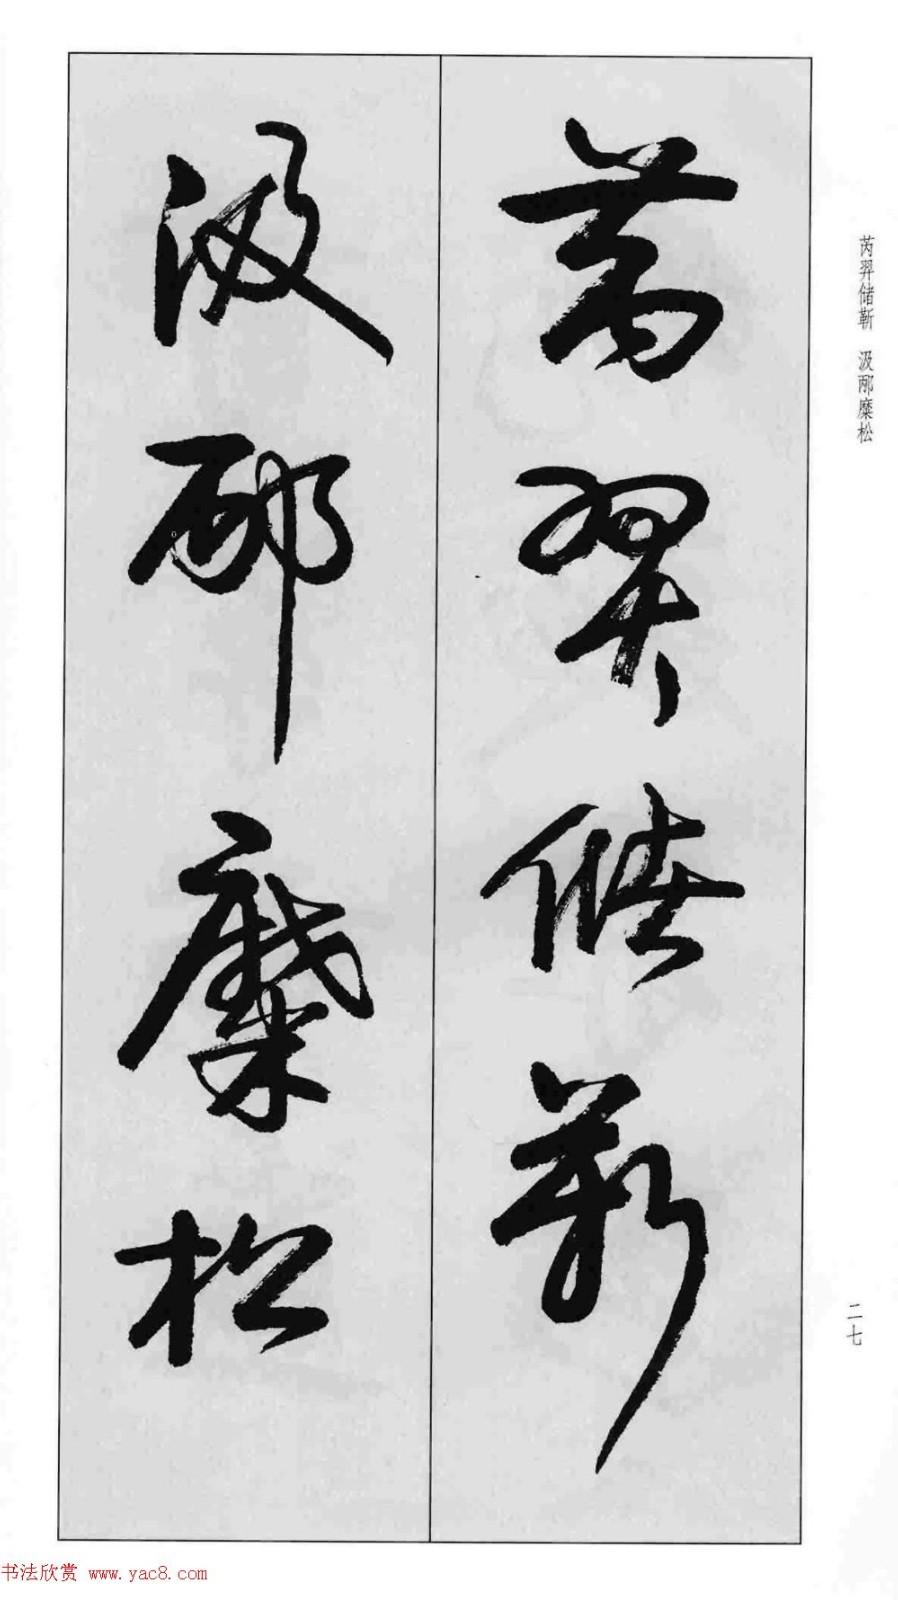 芮羿储靳 汲邴糜松
芮羿儲靳
汲邴糜松
二七
书法欣赏 www.yac8.com